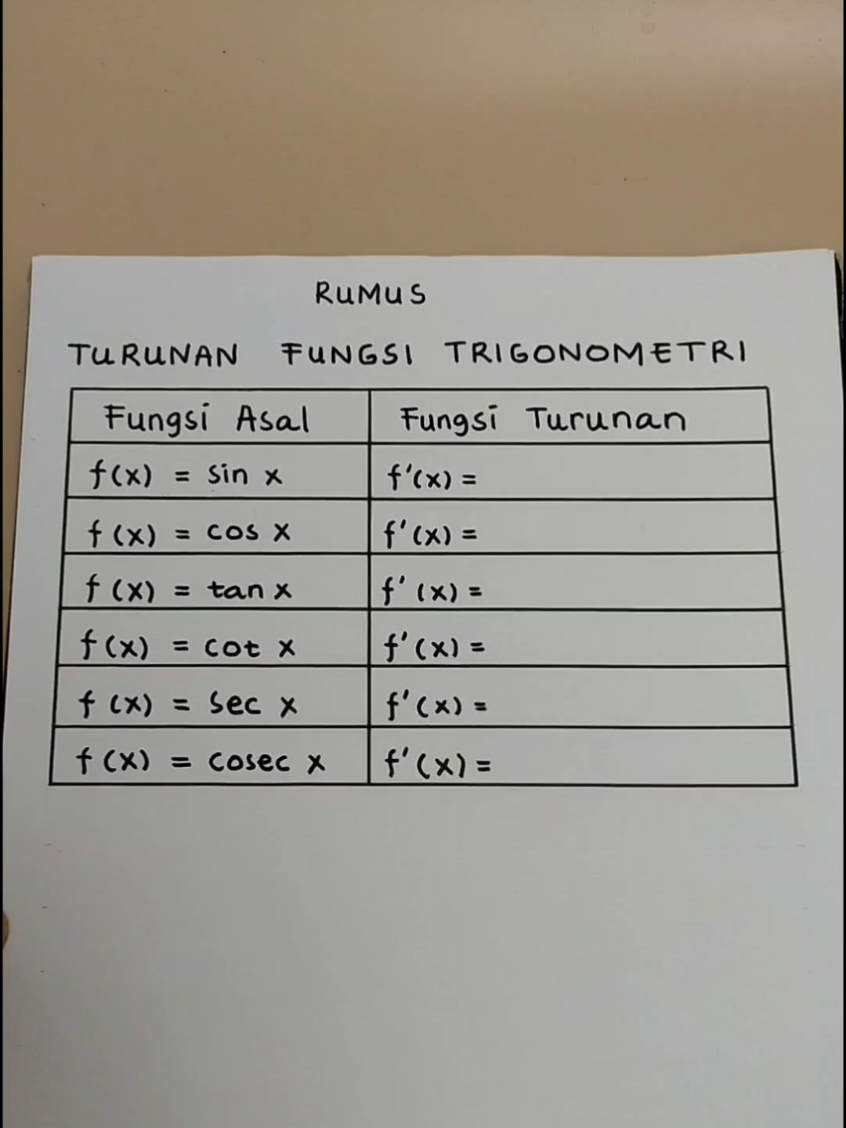 RUMUS
TURUNAN FUNGSI TRIGONOMETRI
Fungsi Asal Fungsi Turunan
f(x) = sin x f'(x) =
f(x) = cos x f'(x) =
f(x) = tan x f'(x) =
f(x) = cot x f'(x) =
f(x) = sec x f'(x) =
f(x) = cosec x f'(x) =